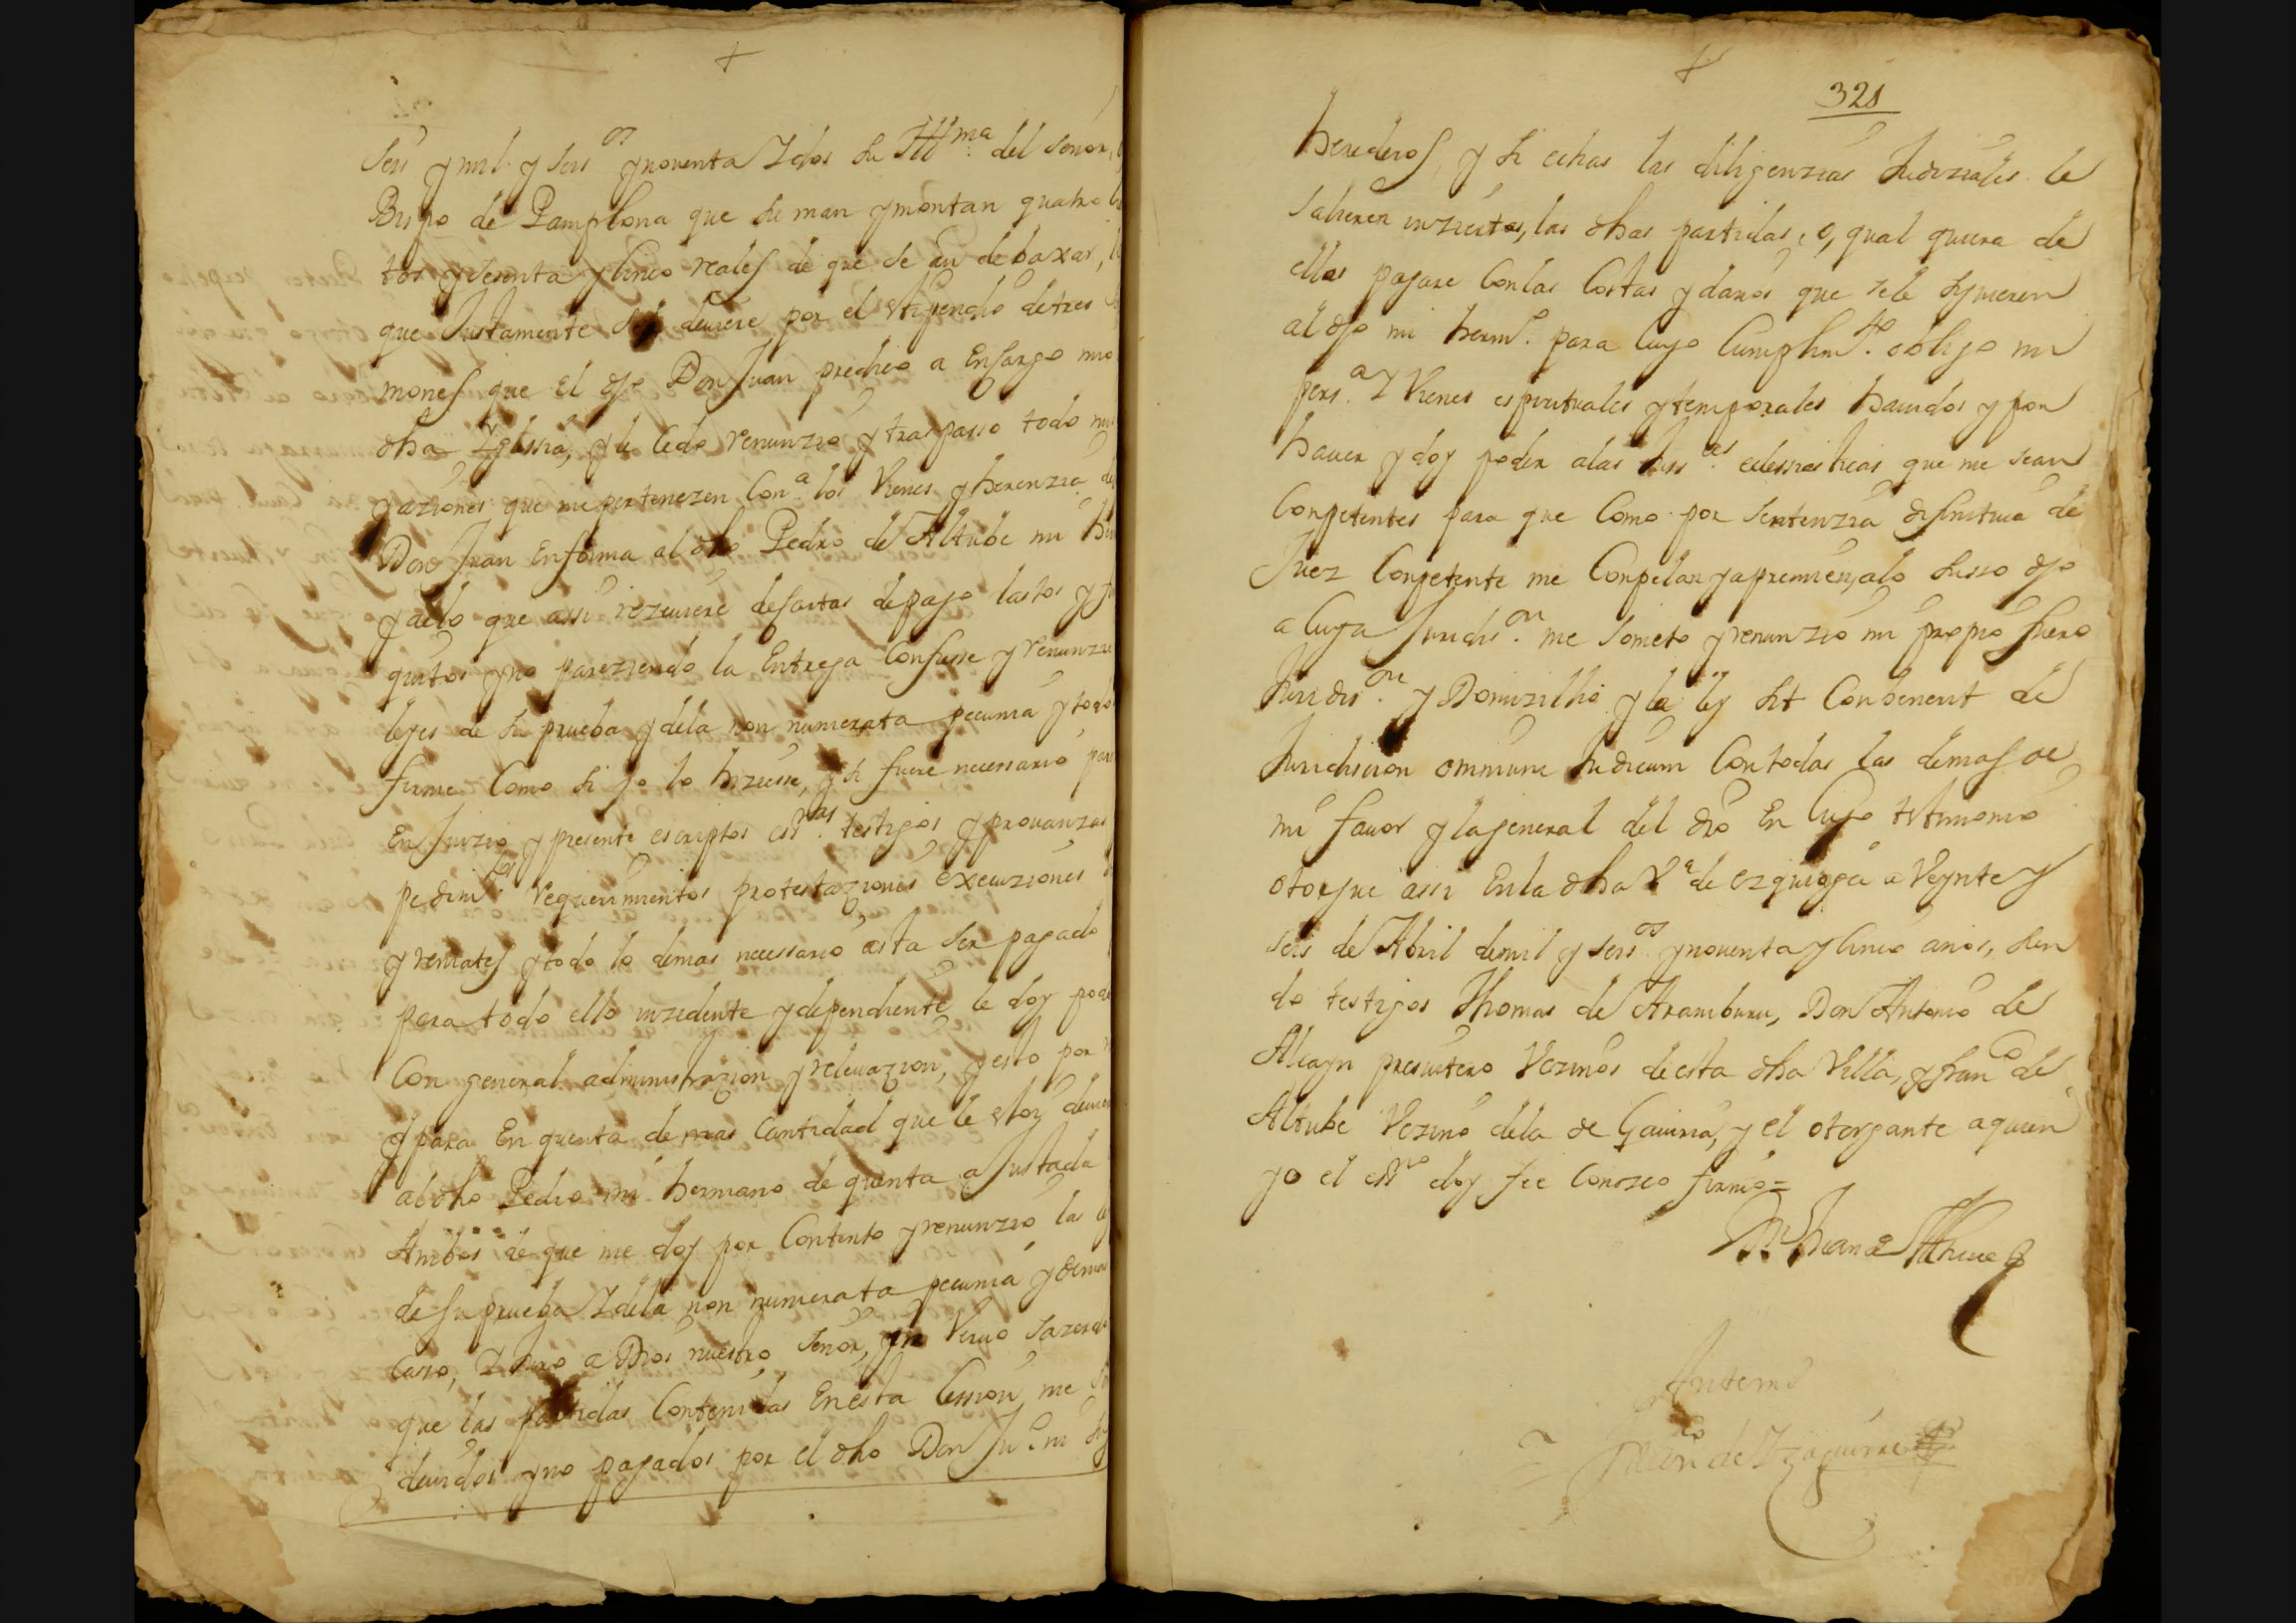 +
seis y mil y seis.os y noventa Y dos su Ill.ma del señor
Bispo de Pamplona que suman y montan quatro
tos y sesenta y cinco reales de que se an de baxar,
que Justamente deuiere por el estipendio de tres
mones que el dho Don Juan predico a Encargo mio
dha Iglessia, y le cedo renunzio y traspasso todo mis
y aziones que me pertenezen Con.a los Vienes y herenzia de
Don Juan En forma al dho Pedro de Altube mi
y de lo que assi reziuiere de Cartas de pago lastos y
quitos y no pareziendo la Entrega Confiesse y renunzie
leyes de su prueba y de la non numerata pecunia y todo
firme Como si yo lo hiziesse, y si fuere necessario
En Juizio y presente escriptos ess.ras testigos y prouanzas
pedim.tos requerimientos protestaziones execuziones
y remates y todo lo demas necessario asta ser pagado
para todo ello inzidente y dependiente le doy
Con general administrazion y releuazion, y esto por
y para En quenta de mas Cantidad que le estoy
al dho Pedro mi hermano de quenta aJustada
Ambos de que me doy por Contento y renunzio las
de su prueba Y de la non numerata pecunia y demas
Caso, Y Juro a Dios nuestro señor, in Veruo Sazer
que las partidas Contenidas En esta Cession me
deuidos y no pagados por el dho Don Ju.o mi
+
321
herederos, y si echas las diligenzias Judiziales le
salieren inziertas, las dhas partidas, o, qual quiera de
ellas pagare Con las Costas y daños que se le siguieren
al dho mi herm.o para Cuyo Cumplim.to obligo mi
pers.a Y Vienes espirituales y temporales hauidos y por
hauer y doy poder a las Juss.as eclessiasticas que me sean
Conpetentes para que Como por Sentenzia difinitiua de
Juez Conpetente me Conpelan y apremien, a lo susso dho
a Cuya Jurids.on me Someto y renunzio mi propio fuero
Jurids.on y Domizilio y la ley sit Conbenerit de
Juridicion omnium Judicum Con todas las demas de
mi fauor y la general del dro En Cuyo testimonio
otorgue assi En la dha V.a de ezquioga a Veynte y
seis de Abril de mil y seis.os y noventa y cinco años, sien
do testigos Thomas de Aramburu, Don Antonio de
Alcayn presuitero Vezinos de esta dha Villa, y fran.co de
Altube Vezino de la de Gauiria, y el otorgante a quien
yo el ess.no doy fee Conozco firmo =
Ante mi